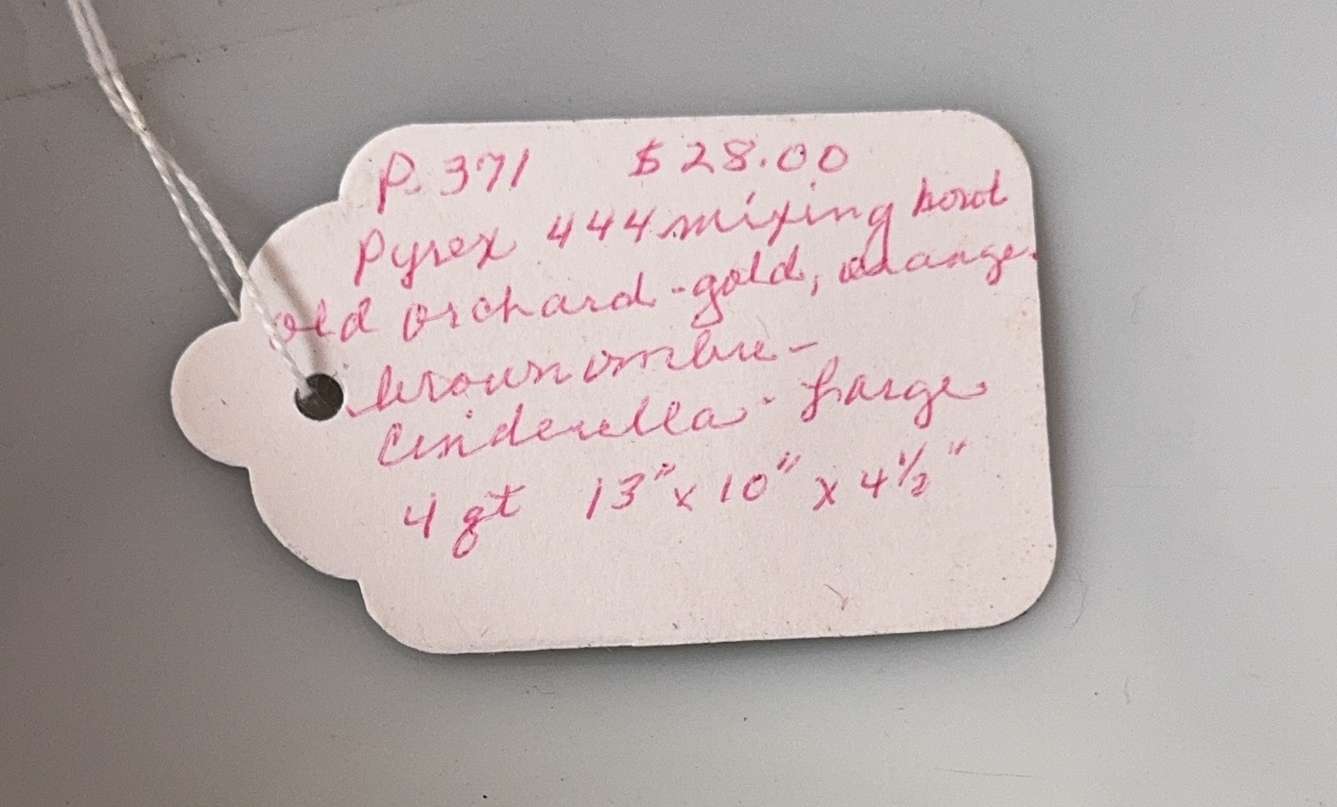 P. 371 $28.00
Pyrex 444 mixing bowl
old orchard - gold, orange
brown ombre -
Cinderella - Large
4 qt 13" x 10" x 4 1/2"